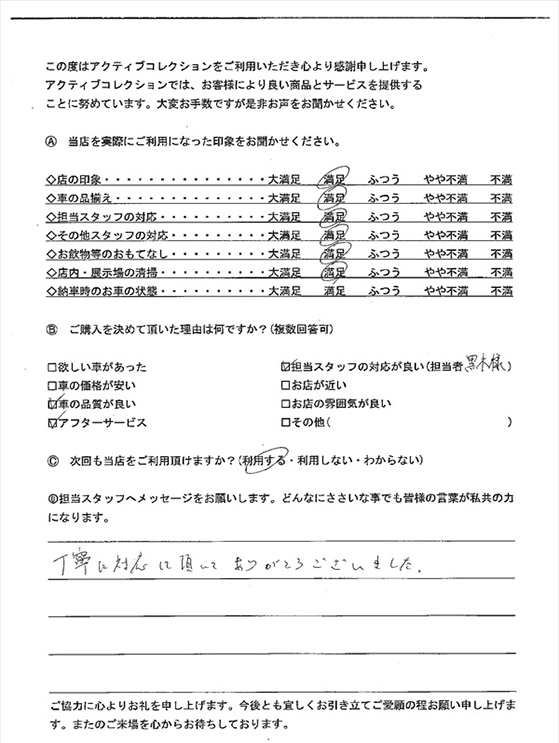 この度はアクティブコレクションをご利用いただき心より感謝申し上げます。
アクティブコレクションでは、お客様により良い商品とサービスを提供する
ことに努めています。大変お手数ですが是非お声をお聞かせください。
Ⓐ 当店を実際にご利用になった印象をお聞かせください。
◇店の印象・・・・・・・・・・・・・・・大満足 満足 ふつう やや不満 不満
◇車の品揃え・・・・・・・・・・・・・・大満足 満足 ふつう やや不満 不満
◇担当スタッフの対応・・・・・・・・・・大満足 満足 ふつう やや不満 不満
◇その他スタッフの対応・・・・・・・・・大満足 満足 ふつう やや不満 不満
◇お飲物等のおもてなし・・・・・・・・・大満足 満足 ふつう やや不満 不満
◇店内・展示場の清掃・・・・・・・・・・大満足 満足 ふつう やや不満 不満
◇納車時のお車の状態・・・・・・・・・・大満足 満足 ふつう やや不満 不満
Ⓑ ご購入を決めて頂いた理由は何ですか？(複数回答可)
□欲しい車があった ☑担当スタッフの対応が良い(担当者 黒木様)
□車の価格が安い □お店が近い
☑車の品質が良い □お店の雰囲気が良い
☑アフターサービス □その他( )
Ⓒ 次回も当店をご利用頂けますか？(利用する・利用しない・わからない)
Ⓓ担当スタッフへメッセージをお願いします。どんなにささいな事でも皆様の言葉が私共の力
になります。
丁寧に対応して頂いて ありがとうございました。
ご協力に心よりお礼を申し上げます。今後とも宜しくお引き立てご愛顧の程お願い申し上げま
す。またのご来場を心からお待ちしております。